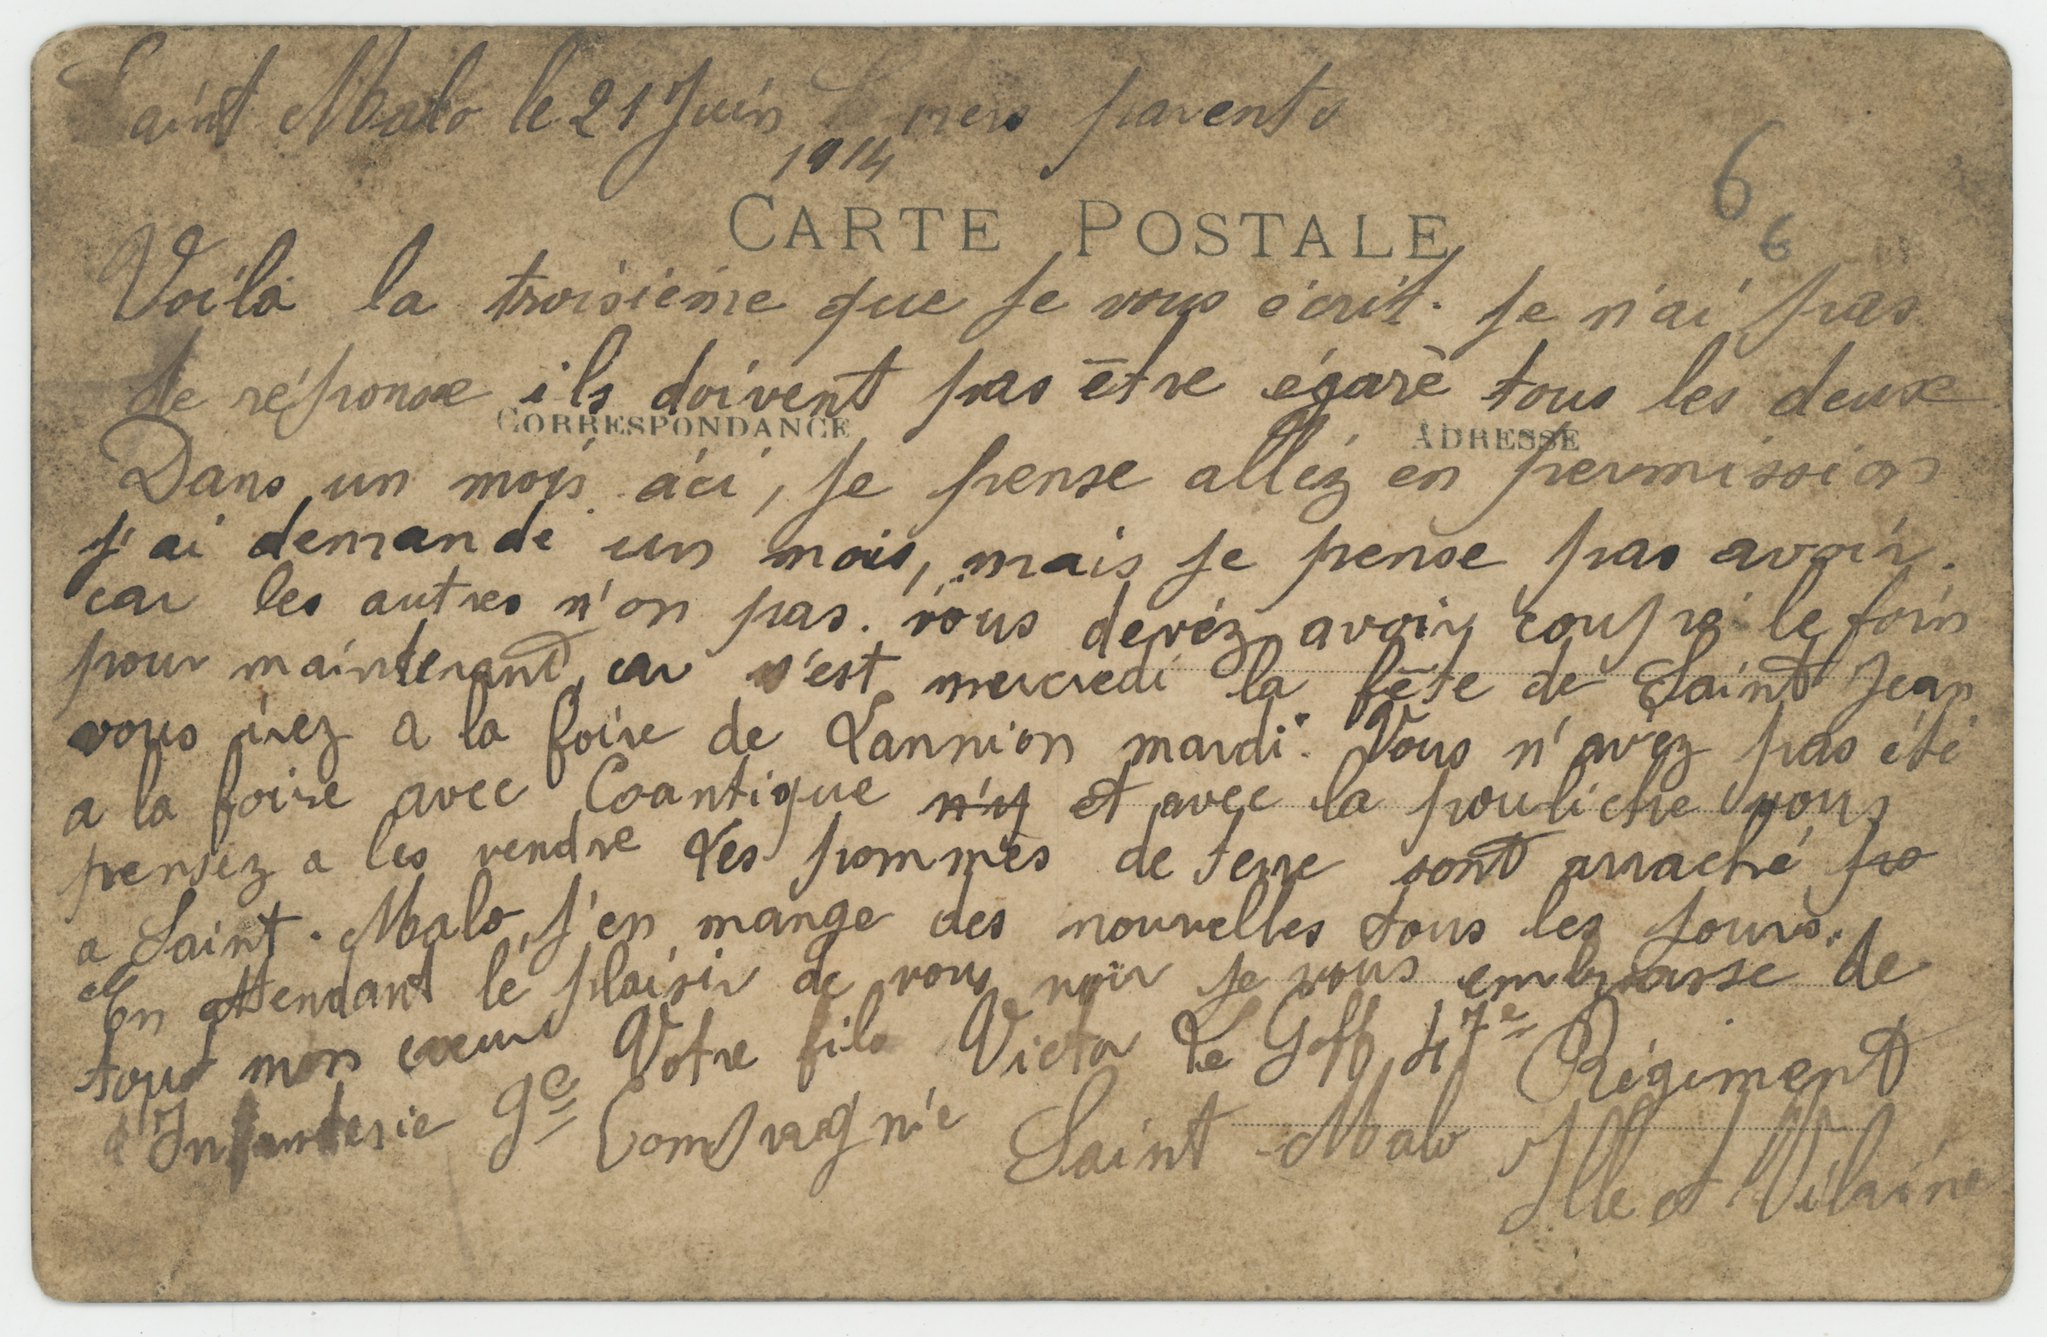 Saint Malo le 21 Juin mers parents
1914
6
6
CARTE POSTALE
Voila la troisiéme que je vous écrit. je n'ai pas
de réponse ils doivent pas être égaré tous les deux
CORRESPONDANCE
ADRESSE
Dans un mois d'ici, je pense alléz en permission
j'ai demandé un mois, mais je pense pas avoir.
car les autres n'on pas. vous devéz avoir coupré le foin
pour maintenant, car s'est mercredi la fête de Saint Jean
vous irez a la foire de Lannion mardi. Vous n'avéz pas été
a la foire avec Coantique n'y et avec la pouliche vous
pensez a les vendre Les pommes de terre sont arraché po
a Saint. Malo, j'en mange des nouvelles tous les jours.
En attendant lé plaisir de vous voir je vous embrasse de
tout mon cœur Votre fils Victor Le Goff 47e Régiment
d'Infanterie 9e Compagnie Saint Malo Ille et Vilaine